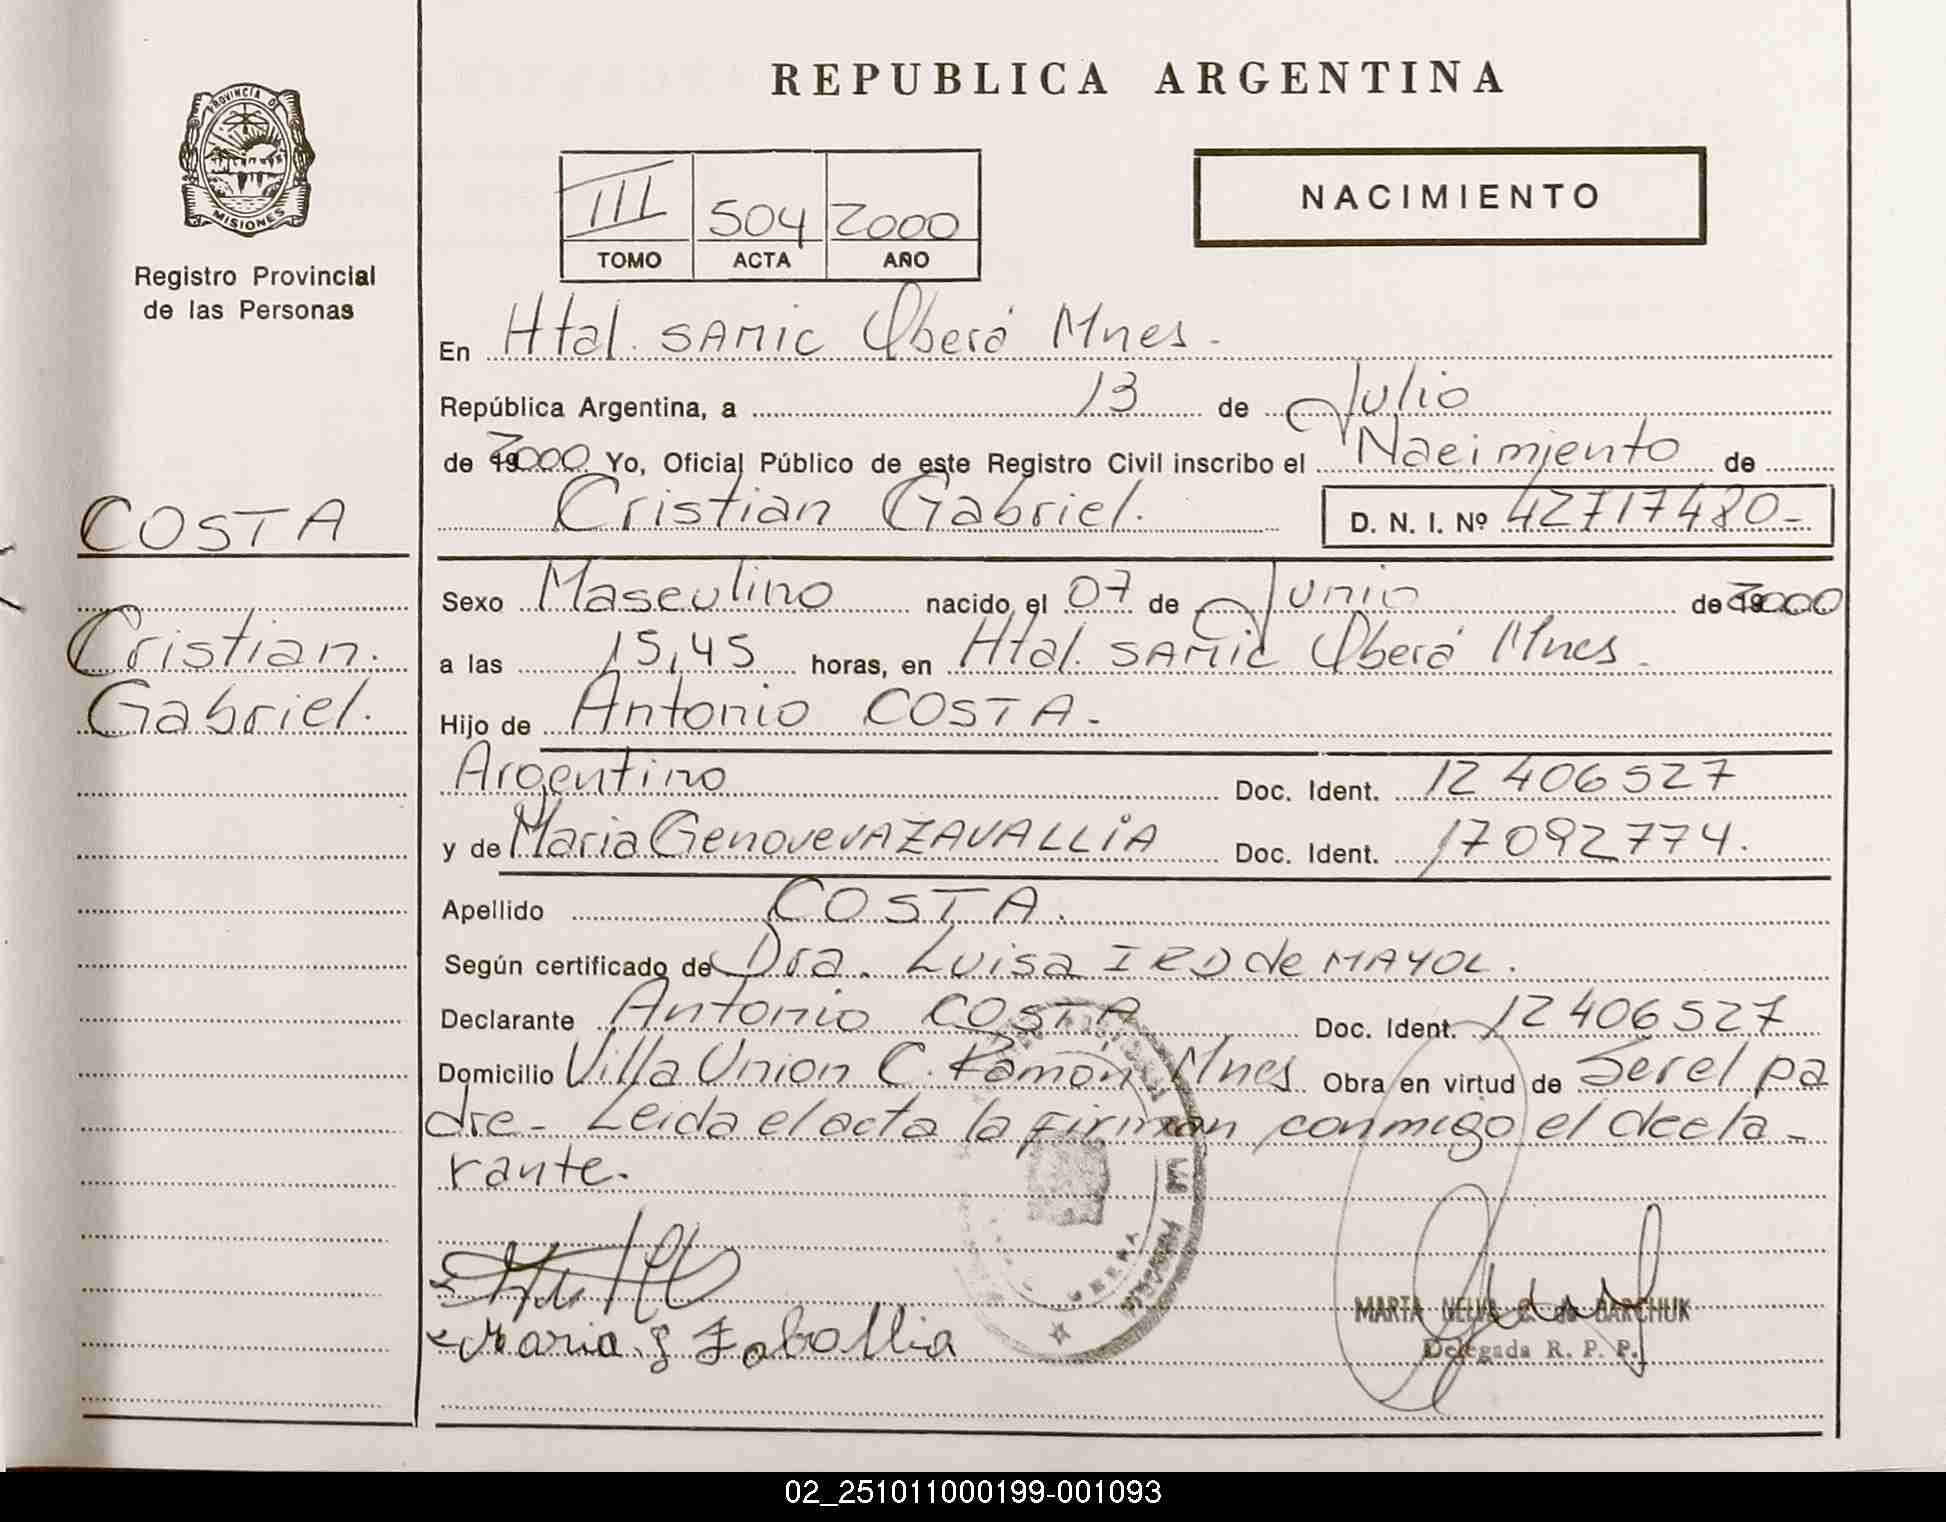 PROVINCIA D
MISIONES
Registro Provincial
de las Personas
COSTA
Cristian.
Gabriel.
REPUBLICA ARGENTINA
III 504 2000
TOMO ACTA AÑO
NACIMIENTO
En Htal. SAMIC Oberá Mnes.
República Argentina, a 13 de Julio
de 2000 Yo, Oficial Público de este Registro Civil inscribo el Nacimiento de
Cristian Gabriel. D. N. I. Nº 42717480-
Sexo Masculino nacido el 07 de Junio de 2000
a las 15,45 horas, en Htal. SAMIC Oberá Mnes.
Hijo de Antonio COSTA.-
Argentino Doc. Ident. 12 406 527
y de Maria Genoveva ZAVALLIA Doc. Ident. 17092774.
Apellido COSTA.
Según certificado de Dra. Luisa de MAYOL.
Declarante Antonio COSTA Doc. Ident. 12 406 527
Domicilio Villa Union C. Ramón Mnes Obra en virtud de Ser el pa
dre- Leida el acta la firman conmigo el decla-
rante.
Maria
MARTA NELVA de BARCHUK
Delegada R. P. P.
02_251011000199-001093